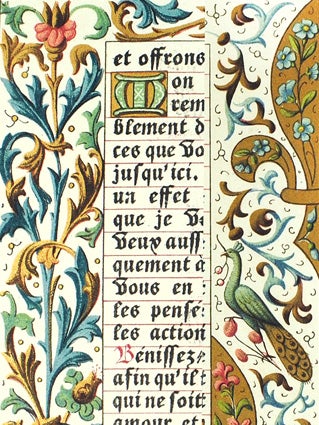 et offrons
Mon
trem
blement d
ces que Vo
jusqu'ici.
un effet
que je V
Veux auss
quement à
Vous en
les pensé
les action
Bénissez
afin qu'il
qui ne soit
amour et